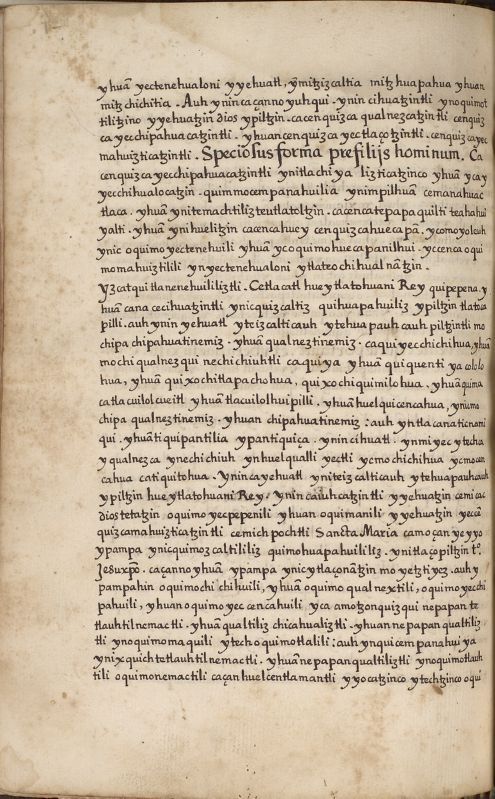 yhuā yectenehualoni yyehuatl, ȳmitzizcaltia mitzhuapahua yhuan
mitzchichitia. Auh ynin caçanno yuhqui. ynin cihuatzintli ynoquimot
tilitzino yyehuatzin dios ypiltzin. cacenquizca qualnezcatzintli cenquiz
ca yecchipahuacatzintli. yhuan cenquizca yectlaçotzintli. cenquizca yec
mahuizticatzintli. Speciosus forma prefilijs hominum. Ca
cenquizca yecchipahuacatzintli ynitlachiya lizticatzinco yhuā ycay
yecchihualocatzin. quimmocempanahuilia ynimpilhuan cemanahuac
tlaca. yhuā ynitemachtiliz teutlatoltzin. cacencatepapaquilti teahahui
yalti. yhuā ynihuelitzin cacencahuey cenquizcahuecapā. ycomoyolcuh
ynic oquimo yectenehuili yhuā ycoquimohuecapanilhui. ycencaoqui
momahuiztilili ynyectenehualoni ytlateochihualnātzin.
yzcatqui tlanenehuililiztli. Cetlacatl hueytlatohuani Rey quipepena. y
huān cana cecihuatzintli ynicquizcaltiz quihuapahuiliz ypiltzin tlatoca
pilli. auh ynin yehuatl yteizcalticauh ytehuapauhcauh piltzintli mo
chipa chipahuatinemiz. yhuā qualneztinemiz. caquiyecchichihua, yhuā
mochi qualnezqui nechichiuhtli caquiya yhuā quiquenti yacololo
hua, yhuā quixochitlapachohua, quixochiquimilohua. yhuāquima
catlacuilolcueitl yhuā tlacuilolhuipilli. yhuā huelquicencahua, ynicmo
chipa qualneztinemiz. yhuan chipahuatinemiz: auh yntla canaticnomi
qui. yhuāti quipantilia ypantiquiça. ynin cihuatl. ynmiyec ytechca
yqualnezca ynechichiuh ynhuelqualli yectli ycmochichihua ycmocen
cahua catiquitohua. ynin cayehuatl yniteizcalticauh ytehuapauhcauh
ypiltzin hueytlatohuani Rey. ynin caiuhcatzintli yyehuatzin cemicac
dios tetatzin oquimo yecpepenili yhuan oquimanili yyehuatzin yecē
quizcamahuizticatzintli cemichpochtli Sancta Maria camoçan yeyyo
ypampa ynicquimozcaltililiz quimohuapahuililiz. ynitlaçopiltzin to.
Jesuxpō. caçannoyhuā ypampa ynicytlaçonātzin moyetztiyez. auhy
pampahin oquimochichihuili, yhuā oquimo qualnextili, oquimoyecchi
pahuili, yhuan oquimo yeccencahuili yca amotzonquizqui nepapan te
tlauhtilnemactli. yhuā qualtiliz chicahualiztli. yhuan nepapan qualtiliz
tli ynoquimomaquili ytech oquimotlalili: auh ynquicempanahuiya
ynixquich tetlauhtilnemactli. yhuā nepapan qualtiliztli ynoquimotlauh
tili oquimonemactili caçan huelcentlamantli yyocatzinco ytechtzinco oqui